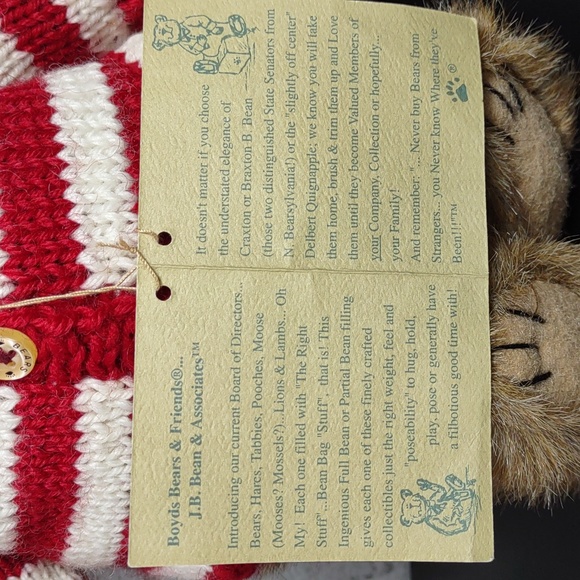 Boyds Bears & Friends®...
J.B. Bean & Associates™
Introducing our current Board of Directors...
Bears, Hares, Tabbies, Pooches, Moose
(Mooses? Mossels?)...Lions & Lambs.... Oh
My! Each one filled with "The Right
Stuff"...Bean Bag "Stuff", that is! This
Ingenious Full Bean or Partial Bean filling
gives each one of these finely crafted
collectibles just the right weight, feel and
"poseability" to hug, hold,
play, pose or generally have
a filbotious good time with!
It doesn't matter if you choose
the understated elegance of
Craxton or Braxton B. Bean
(those two distinguished State Senators from
N. Bearsylvania!) or the "slightly off center"
Delbert Quignapple; we know you will take
them home, brush & trim them up and Love
them until they become Valued Members of
your Company, Collection or hopefully...
your Family!
And remember: "... Never buy Bears from
Strangers... you Never know Where they've
Been!!"™
®
BEARS